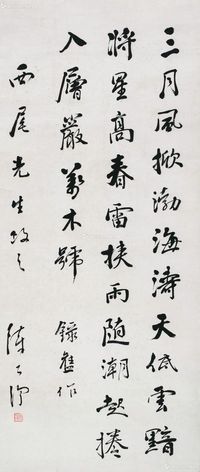 三月風掀渤海濤天低雲黯
將星高春雷挾雨隨潮起捲
入層巖萬木號 錄舊作
西尾先生政之
陳公博